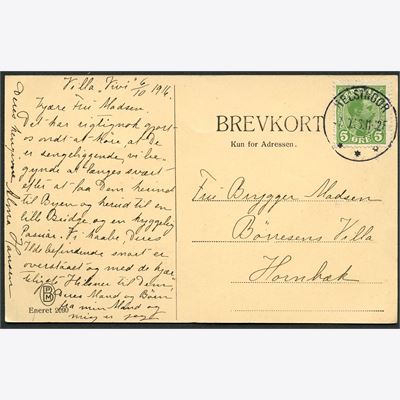 Villa "Vivi" 6/10 1916.
Kjære Fru Madsen.
Det har rigtignok gjort
os ondt at høre, at De
er sengeliggende, vi be-
gynde at længes svært
efter at faa Dem herind
til Byen og herud til en
lille Bridge og en hyggelig
Passiar. Vi haabe, Deres
Ildebefindende snart er
overstaaet og med de kjær-
ligste Hilsner til Dem,
Deres Mand og Børn
fra min Mand og
mig er jeg
Deres hengivne
Hansen
BREVKORT
Kun for Adressen.
HELSINGØR
5 ØRE 5
Fru Brygger Madsen
Børresens Villa
Hornbæk
Eneret 2690